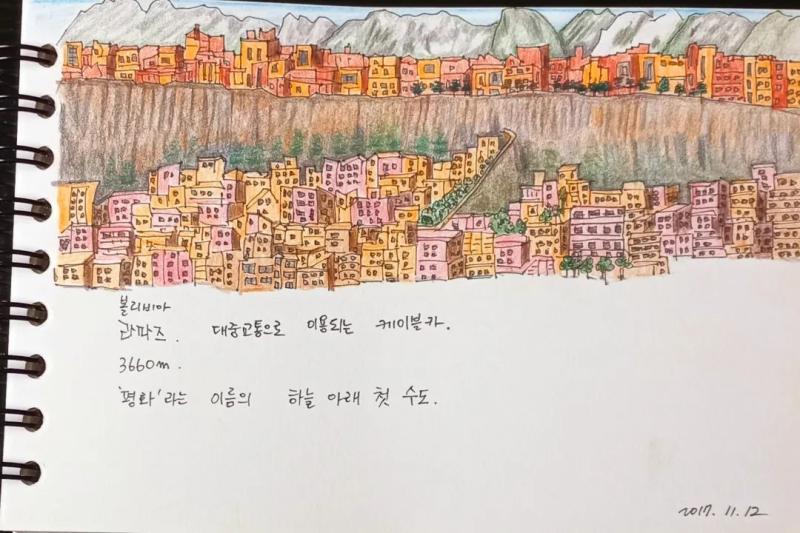 볼리비아
라파즈. 대중교통으로 이용되는 케이블카.
3660m.
'평화'라는 이름의 하늘 아래 첫 수도.
2017. 11. 12